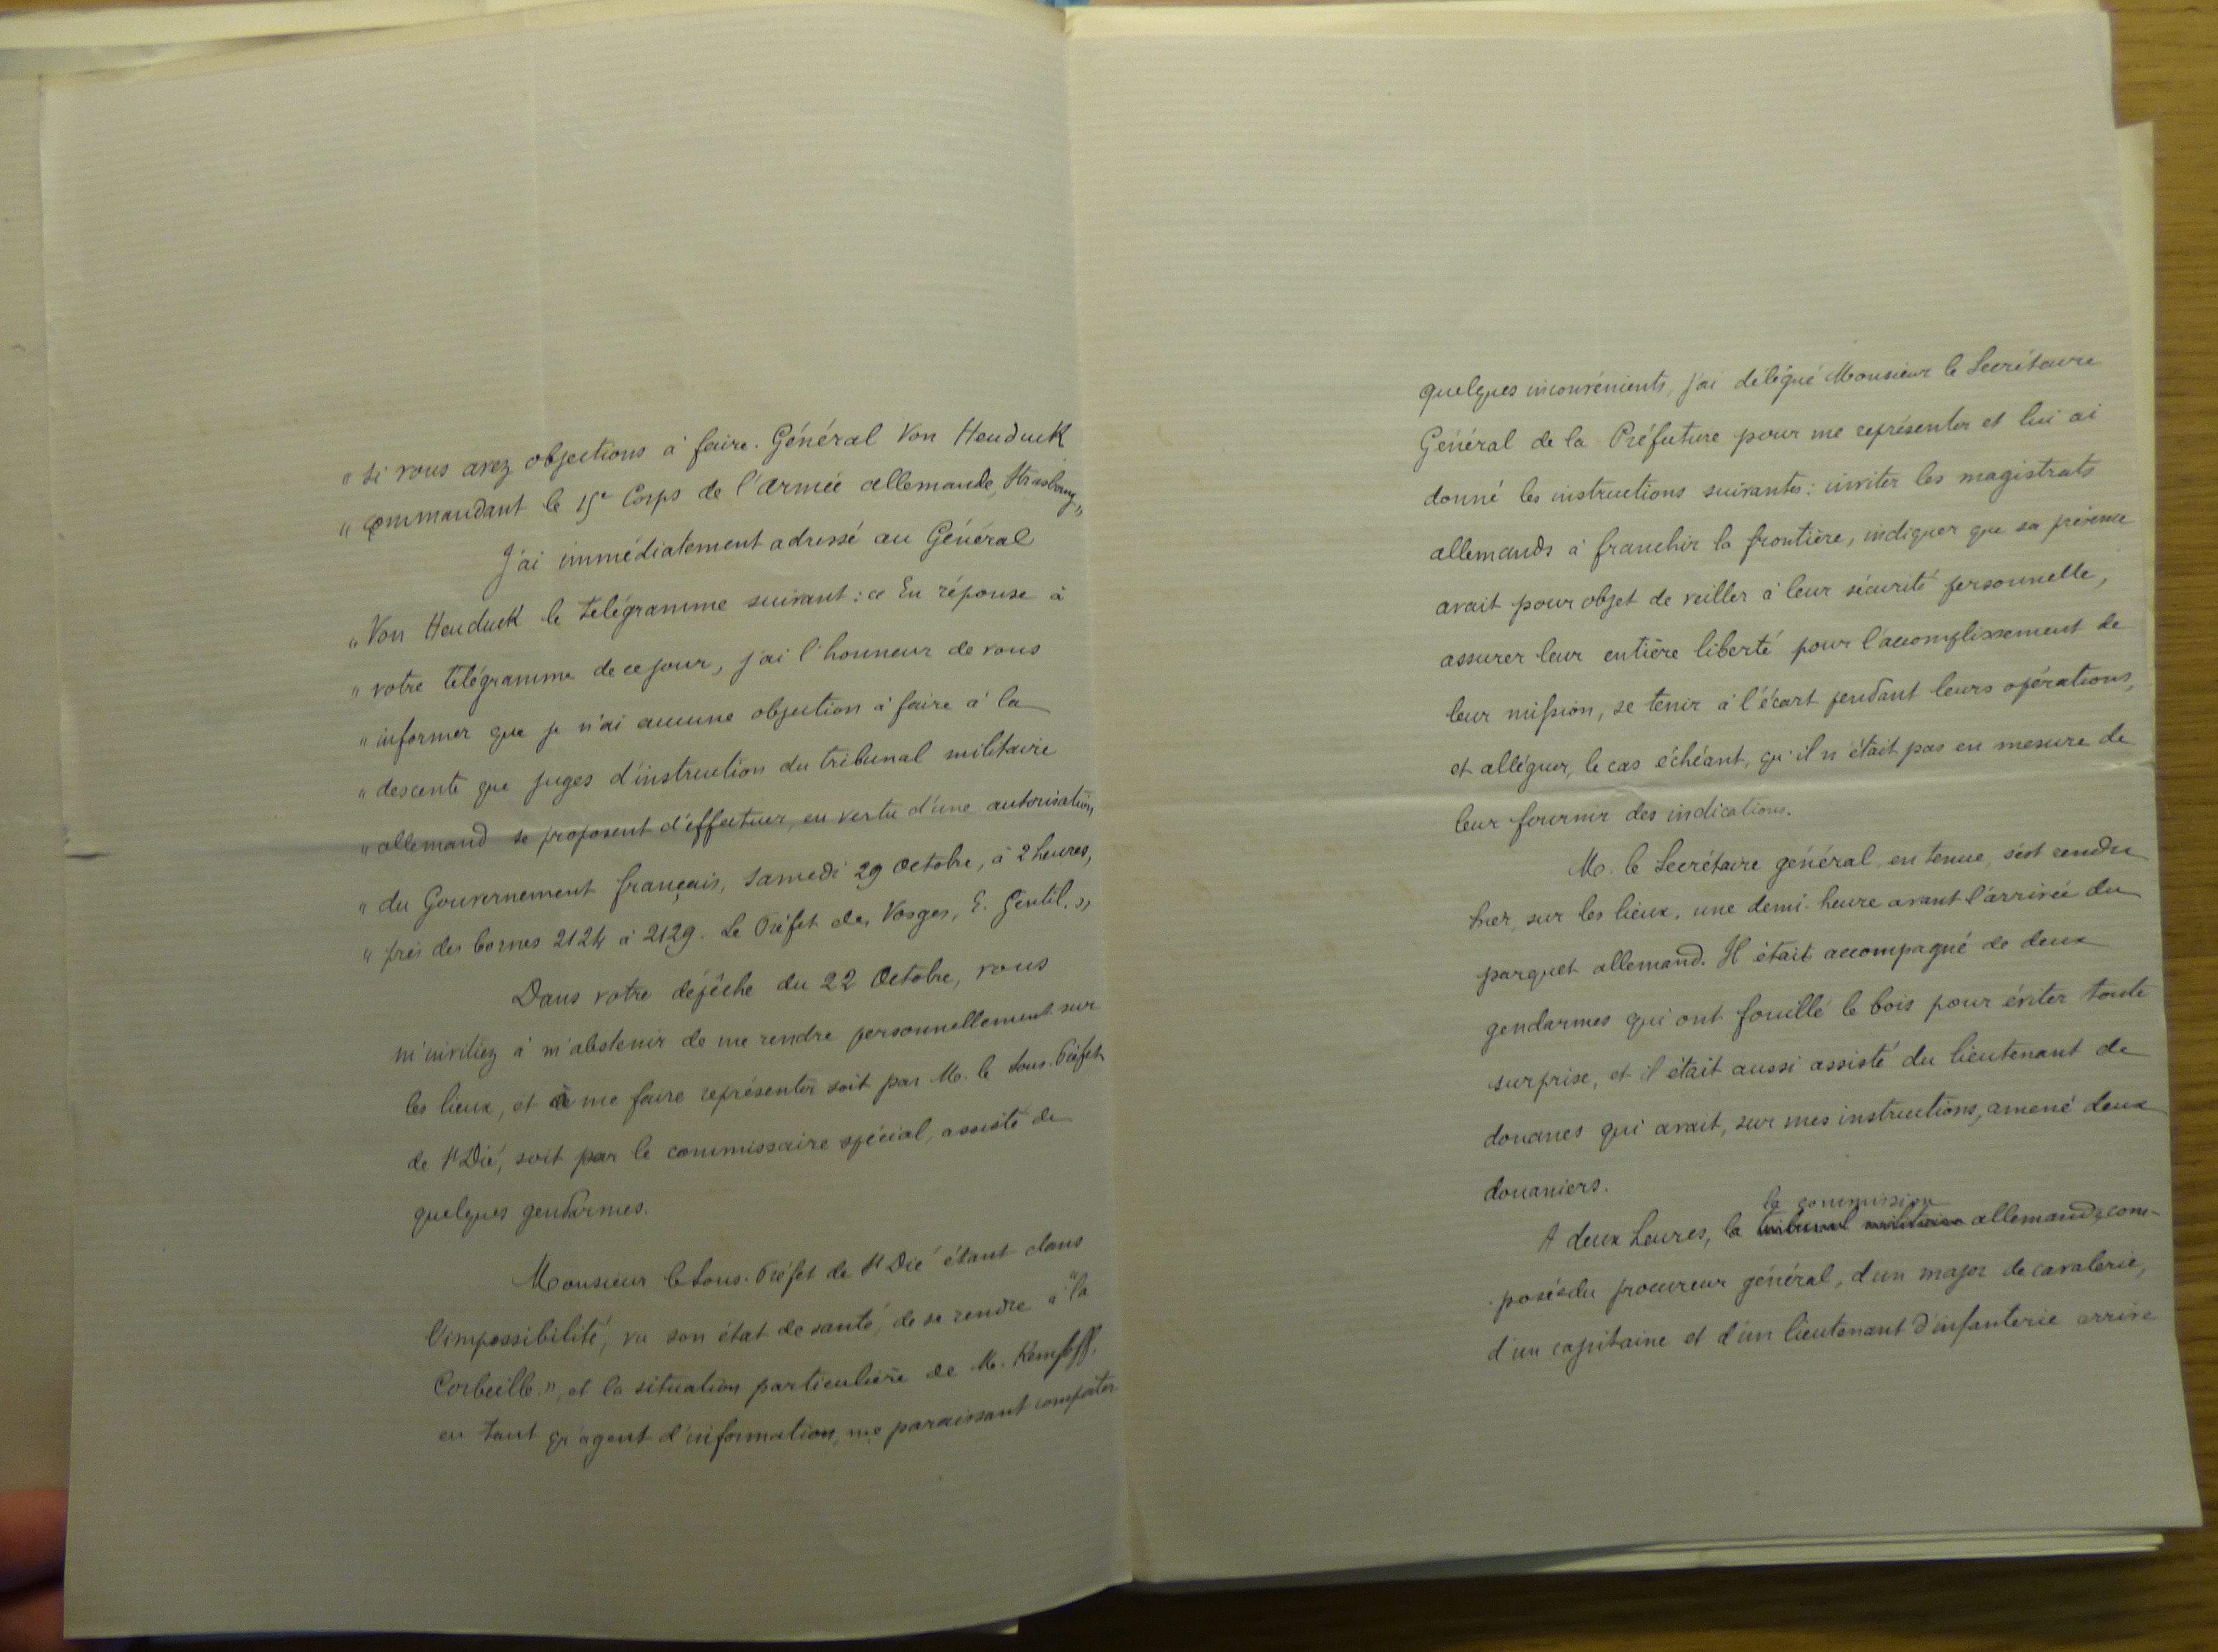 " si vous avez objections à faire. Général Von Heuduck
" commandant le 15e Corps de l'armée allemande, Strasbourg"
J'ai immédiatement adressé au Général
" Von Heuduck le télégramme suivant : « En réponse à
" votre télégramme de ce jour, j'ai l'honneur de vous
" informer que je n'ai aucune objection à faire à la
" descente que juges d'instruction du tribunal militaire
" allemand se proposent d'effectuer, en vertu d'une autorisation
" du Gouvernement français, samedi 29 octobre, à 2 heures,
" près des bornes 2124 à 2129. Le Préfet des Vosges, E. Gentil. »
Dans votre dépêche du 22 Octobre, vous
m'invitiez à m'abstenir de me rendre personnellement sur
les lieux, et à me faire représenter soit par M. le Sous-Préfet
de St Dié, soit par le commissaire spécial, assisté de
quelques gendarmes.
Monsieur le Sous-Préfet de St Dié étant dans
l'impossibilité, vu son état de santé, de se rendre à "la
Corbeille", et la situation particulière de M.
en tant qu'agent d'information, me paraissant comporter
quelques inconvénients, j'ai délégué Monsieur le Secrétaire
Général de la Préfecture pour me représenter et lui ai
donné les instructions suivantes : inviter les magistrats
allemands à franchir la frontière, indiquer que sa présence
avait pour objet de veiller à leur sécurité personnelle,
assurer leur entière liberté pour l'accomplissement de
leur mission, se tenir à l'écart pendant leurs opérations,
et alléguer, le cas échéant, qu'il n'était pas en mesure de
leur fournir des indications.
M. le Secrétaire général, en tenue, s'est rendu
hier, sur les lieux, une demi-heure avant l'arrivée du
parquet allemand. Il était accompagné de deux
gendarmes qui ont fouillé le bois pour éviter toute
surprise, et il était aussi assisté du lieutenant de
douanes qui avait, sur mes instructions, amené deux
douaniers.
la commission
A deux heures, le tribunal militaire allemande com-
posée du procureur général, d'un major de cavalerie,
d'un capitaine et d'un lieutenant d'infanterie arrive